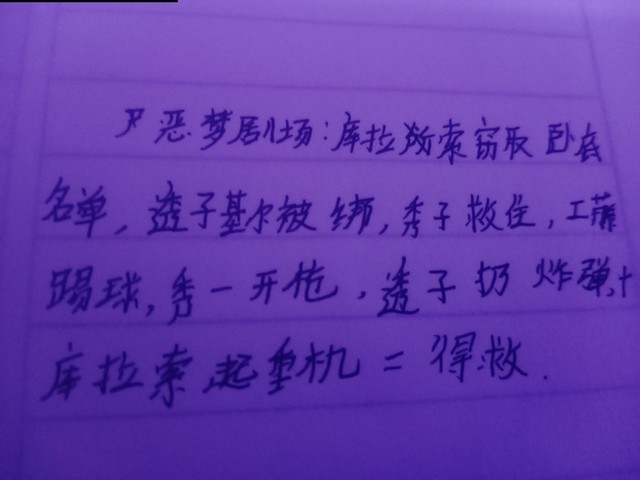 恶梦剧场：库拉索窃取卧底
名单，透子基尔被绑，秀子救住，工藤
踢球，秀一开枪，透子扔炸弹，+
库拉索起重机=得救.